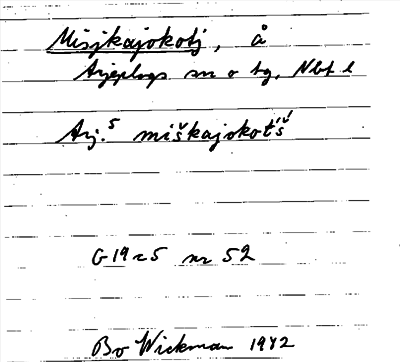 Misjkajokotj, å
Arjeplogs sn o tg, Nbt l
Arj.⁵ miškajokot́š́
G 19 c 5 nr 52
Bo Wickman 1942